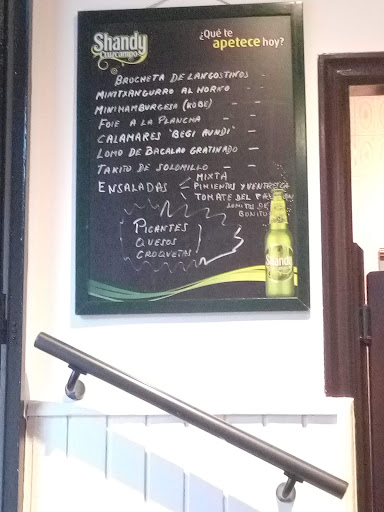 Shandy
Cruzcampo
¿Qué te
apetece hoy?
BROCHETA DE LANGOSTINOS
MINITXANGURRO AL HORNO
MINIHAMBURGESA (KOBE)
FOIE A LA PLANCHA
CALAMARES "BEGI AUNDI"
LOMO DE BACALAO GRATINADO
TAKITO DE SOLOMILLO
ENSALADAS
MIXTA
PIMIENTOS Y VENTRESCA
TOMATE DEL
LOMITOS DE
BONITO
PICANTES
QUESOS
CROQUETAS
Shandy